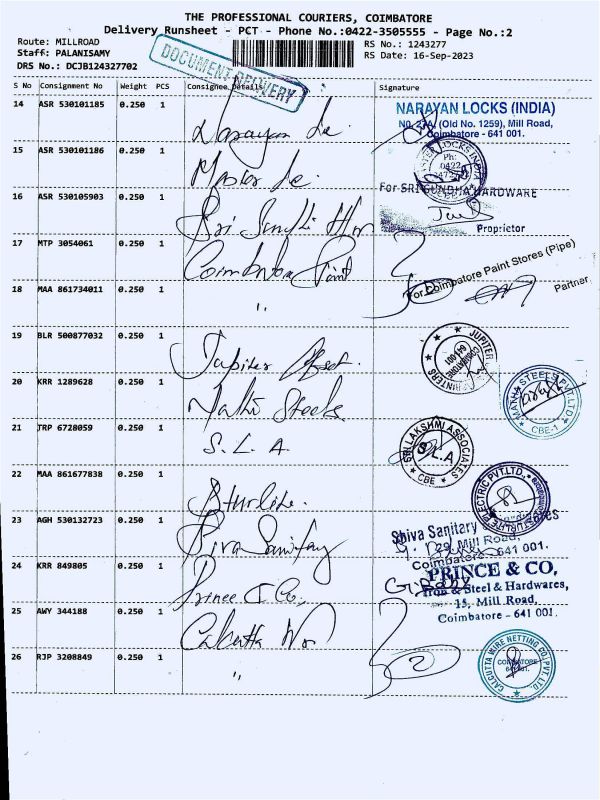 THE PROFESSIONAL COURIERS, COIMBATORE
Delivery Runsheet - PCT - Phone No.:0422-3505555 - Page No.:2
Route: MILLROAD
RS No.: 1243277
Staff: PALANISAMY
RS Date: 16-Sep-2023
DRS No.: DCJB124327702
DOCUMENT DELIVERY
S No Consignment No Weight PCS Consignee Details Signature
14 ASR 530101185 0.250 1 Narayan Lo
NARAYAN LOCKS (INDIA)
No. 27A, (Old No. 1259), Mill Road,
Coimbatore - 641 001.
15 ASR 530101186 0.250 1 Master Lo
LOCKS INDIA
Ph:
0422
16 ASR 530105903 0.250 1 Sri Sundha
For SRI SUNDHA HARDWARE
Proprietor
17 MTP 3054061 0.250 1 Coimbatore Paint
For Coimbatore Paint Stores (Pipe)
Partner
18 MAA 861734011 0.250 1 "
19 BLR 500877032 0.250 1 Jupiter Offset
JUPITER PRINTERS
COIMBATORE
641001
20 KRR 1289628 0.250 1 Steels
STEELS PVT. LTD.
CBE-1
21 TRP 6728059 0.250 1 S. L. A.
SRI LAKSHMI ASSOCIATES
S.L.A
CBE
22 MAA 861677838 0.250 1 Sturlite
STURLITE ELECTRIC PVT. LTD.
23 AGH 530132723 0.250 1 Siva Sanitary
Shiva Sanitary
29, Mill Road,
Coimbatore - 641 001.
24 KRR 849805 0.250 1 Prince & Co,
PRINCE & CO,
Iron & Steel & Hardwares,
15, Mill Road,
Coimbatore - 641 001.
25 AWY 344188 0.250 1 Calcutta
26 RJP 3208849 0.250 1 "
2
CALCUTTA WIRE NETTING CO. PVT. LTD
COIMBATORE
641001.